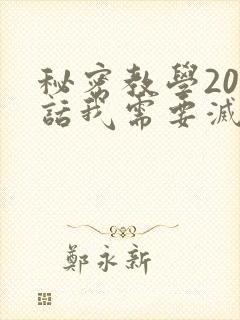 秘密教學20
話我需要滅
鄭永新